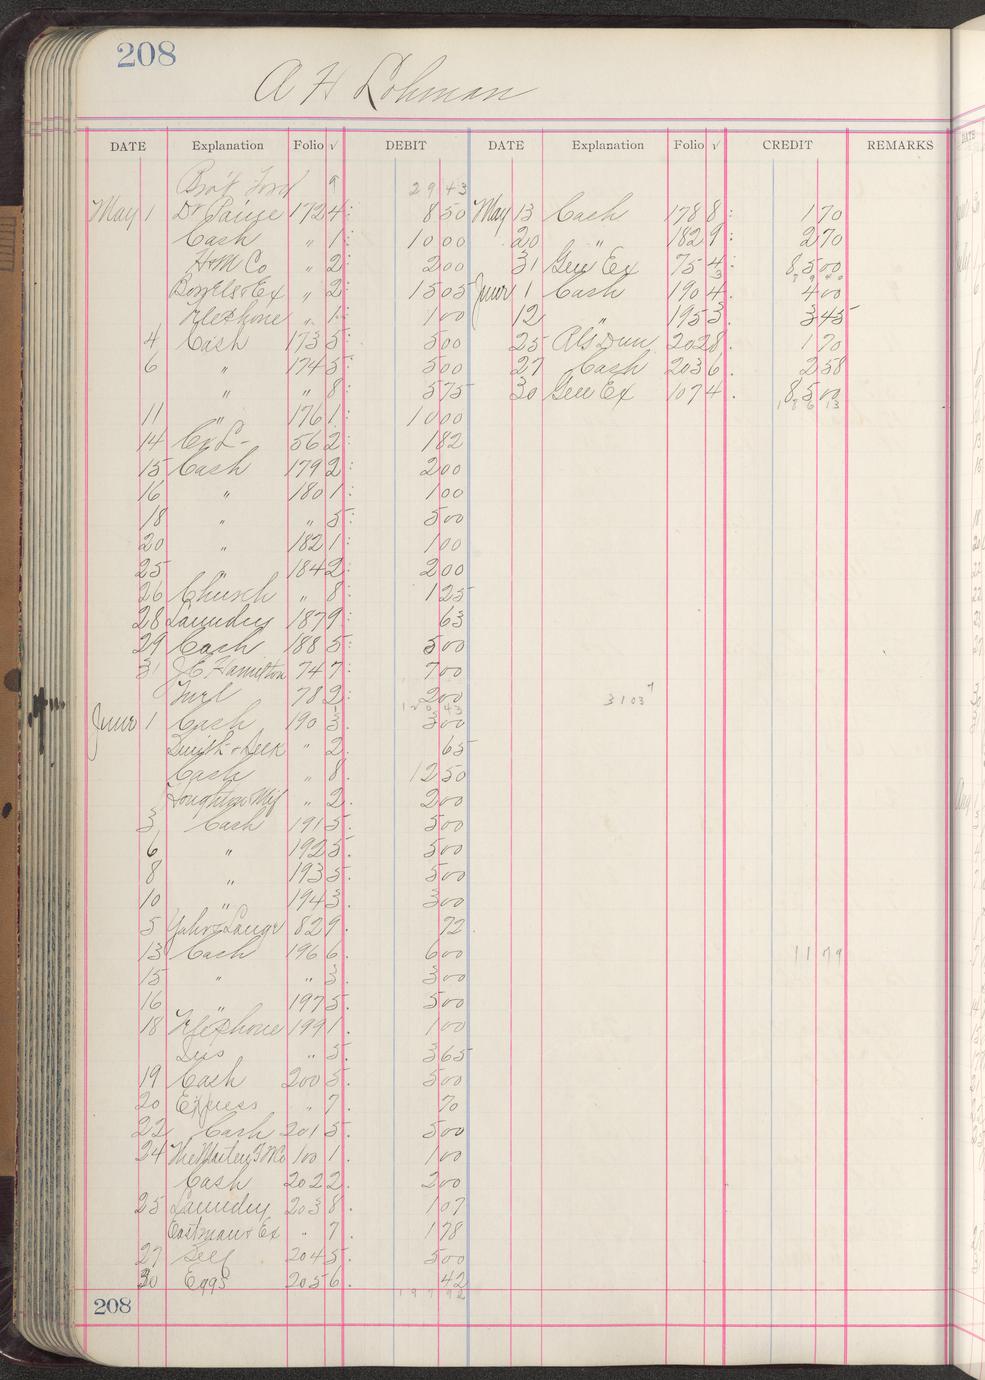 208
A H Lohman
DATE Explanation Folio √ DEBIT DATE Explanation Folio √ CREDIT REMARKS
Bro't Ford 9 29 43
May 1 Dr Paine 172 4 8 50 May 13 Cash 178 8 1 70
Cash " 1 10 00 20 " 182 9 2 70
H & M Co " 2 2 00 31 Gen Ex 75 4 8,5 00
& Ex " 2 15 05 June 1 Cash 190 4 4 00
Telephone " 1 1 00 12 " 195 3 3 45
4 Cash 173 5 5 00 25 202 8 1 70
6 " 174 5 5 00 27 Cash 203 6 2 58
" " 8 5 75 30 Gen Ex 107 4 8,5 00
11 " 176 1 10 00
14 56 2 1 82
15 Cash 179 2 2 00
16 " 180 1 1 00
18 " " 5 5 00
20 " 182 1 1 00
25 " 184 2 2 00
26 Church " 8 1 25
28 Laundry 187 9 63
29 Cash 188 5 5 00
31 J C Hamilton 74 7 7 00
78 2 2 00 3103
June 1 Cash 190 3 3 00
Smith & " 2 65
Cash " 8 12 50
Houghton Mif " 2 2 00
3 Cash 191 5 5 00
6 " 192 5 5 00
8 " 193 5 5 00
10 " 194 3 3 00
5 Yahr & Lange 82 9 72
13 Cash 196 6 6 00 11 79
15 " " 3 3 00
16 " 197 5 5 00
18 Telephone 199 1 1 00
" 5 3 65
19 Cash 200 5 5 00
20 Express " 7 70
22 Cash 201 5 5 00
24 100 1 1 00
Cash 202 2 2 00
25 Laundry 203 8 1 07
Eastman & Ex " 7 1 78
27 Self 204 5 5 00
30 Eggs 205 6 42
208